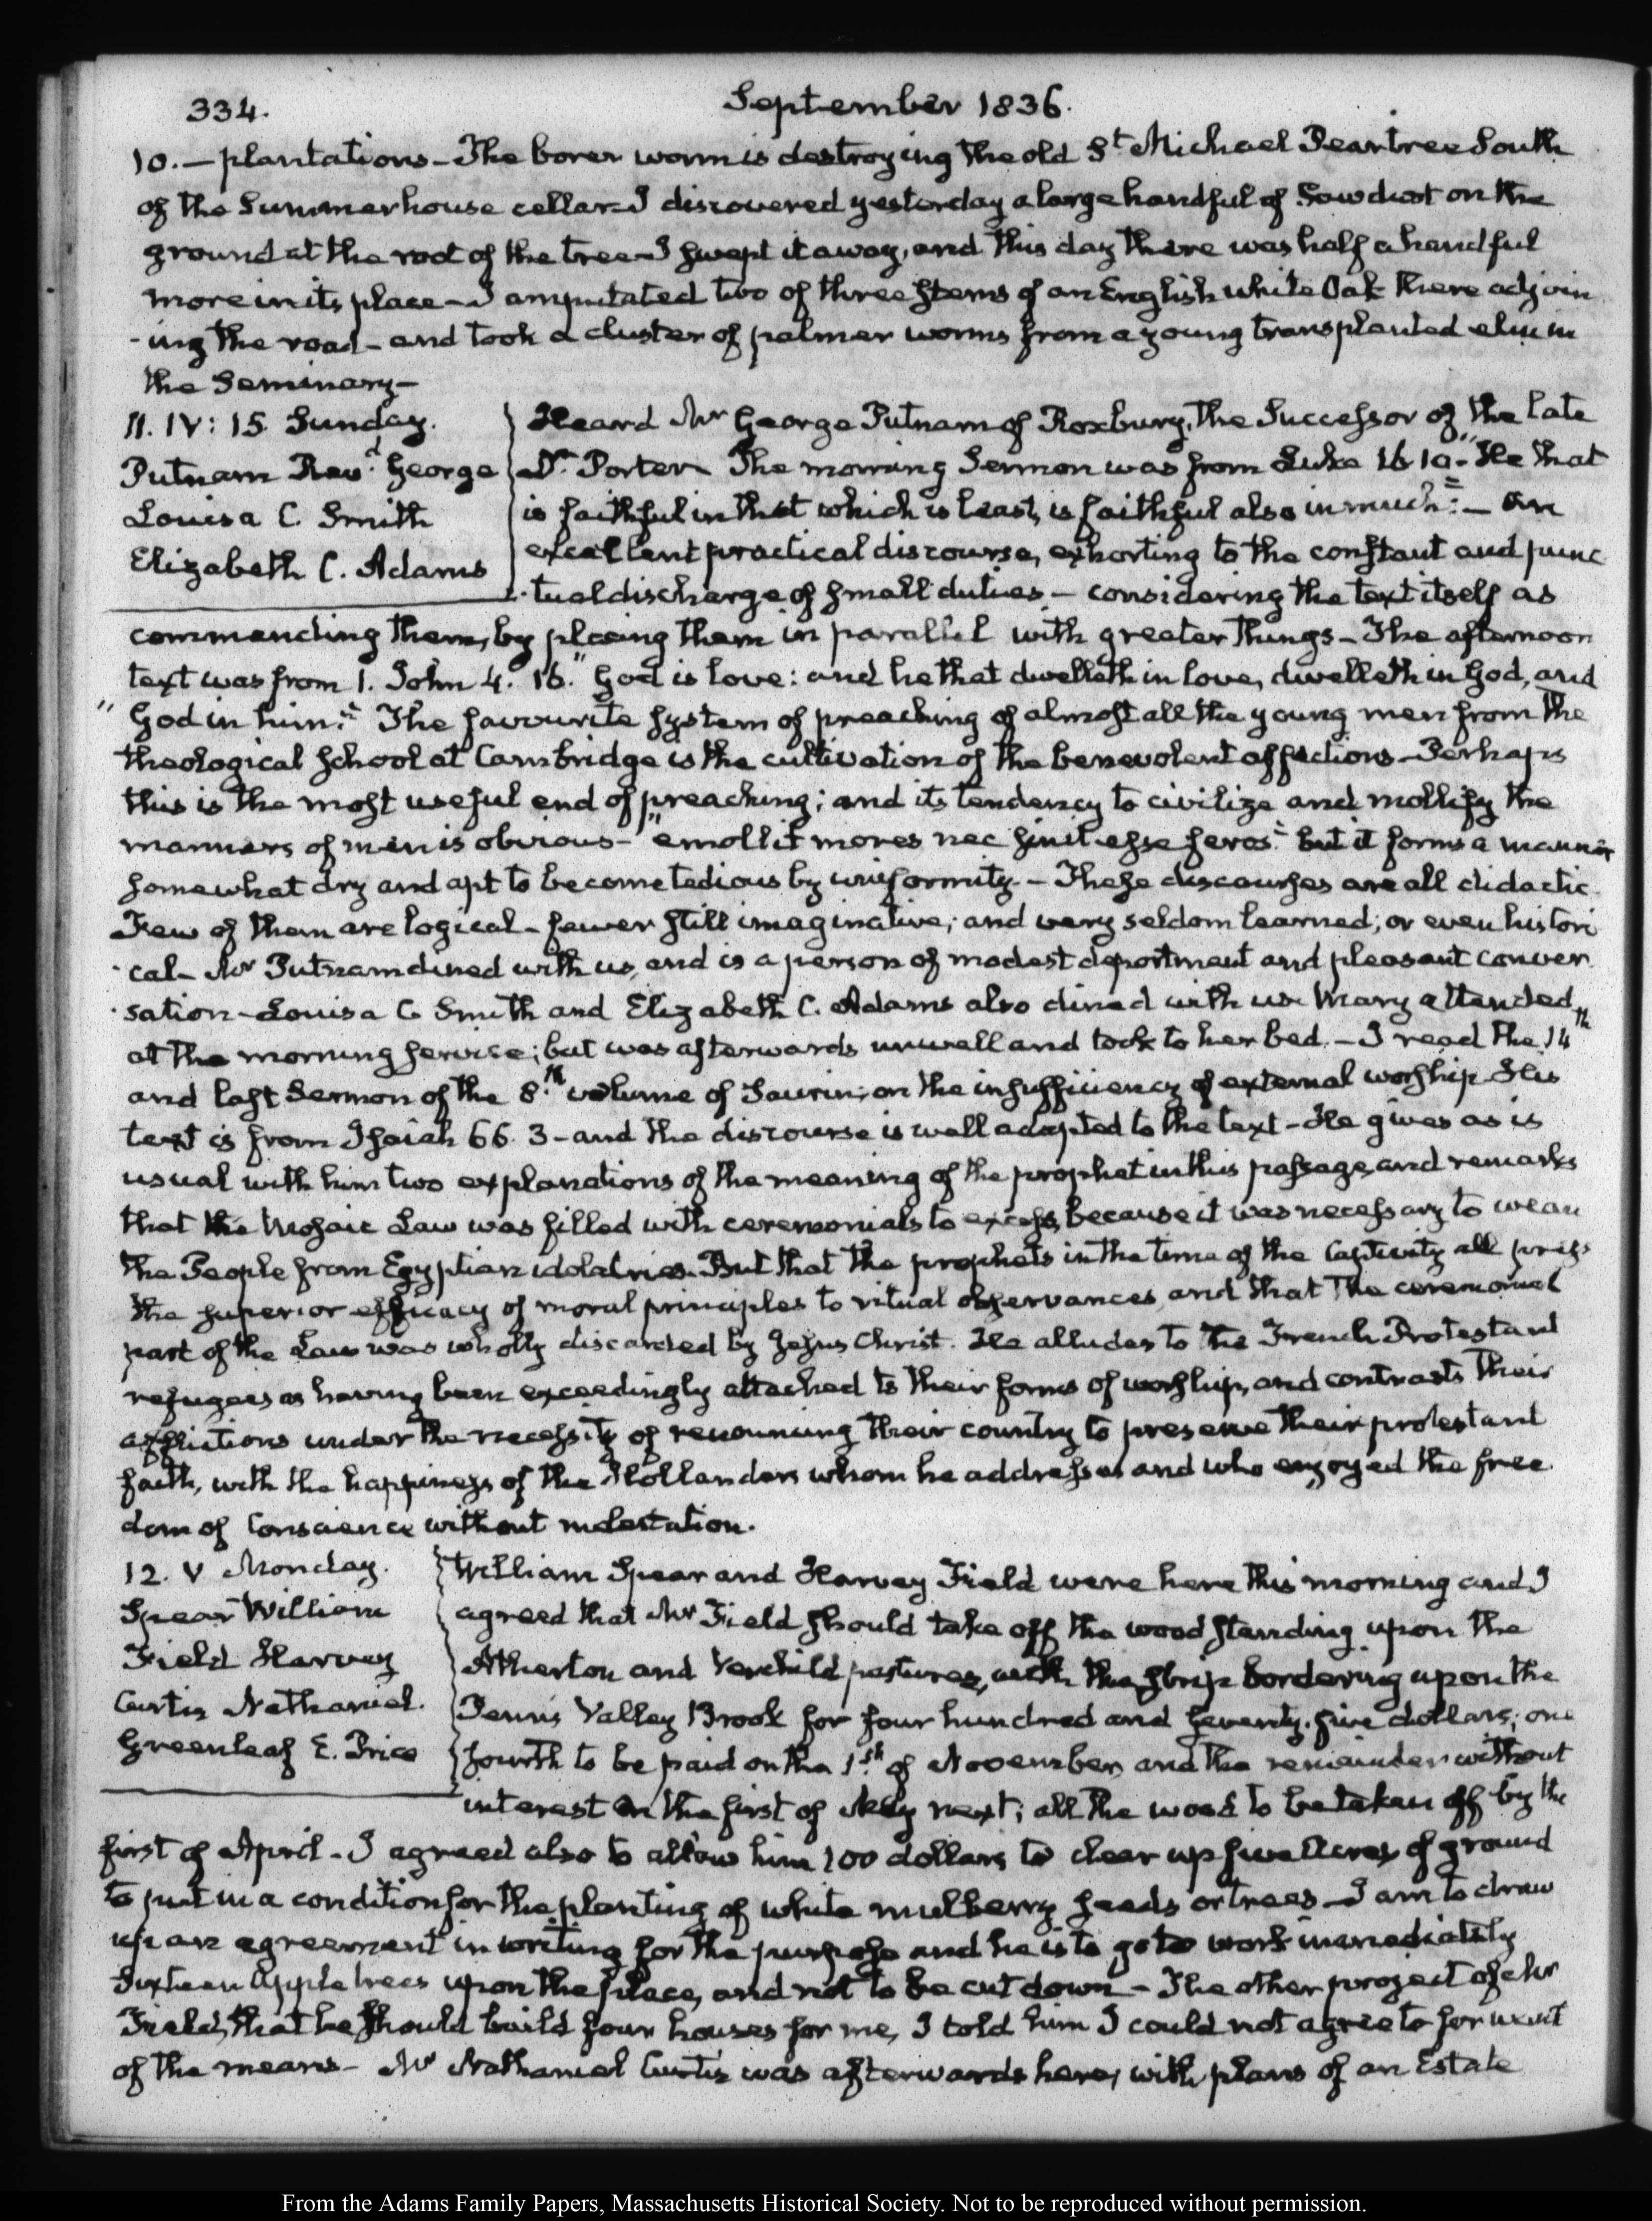 334.
September 1836.
10. — plantations — The borer worm is destroying the old St Michael Peartree South
of the Summerhouse cellar — I discovered yesterday a large handful of Sawdust on the
ground at the root of the tree — I swept it away, and this day there was half a handful
more in its place — I amputated two of three stems of an English white Oak there adjoin
-ing the road — and took a cluster of palmer worms from a young transplanted elm in
the Seminary —
11. IV: 15 Sunday.
Putnam Revd. George
Louisa C. Smith
Elizabeth C. Adams
Heard Mr George Putnam of Roxbury, the Successor of the late
Dr. Porter The morning Sermon was from Luke 16 10. "He that
is faithful in that which is least, is faithful also in much" — an
excellent practical discourse, exhorting to the constant and punc
-tual discharge of small duties — considering the text itself as
commanding them, by placing them in parallel with greater things — The afternoon
text was from 1. John 4. 16. "God is love: and he that dwelleth in love, dwelleth in God, and
"God in him." The favourite system of preaching of almost all the young men from the
theological school at Cambridge is the cultivation of the benevolent affections — Perhaps
this is the most useful end of preaching; and its tendency to civilize and mollify the
manners of men is obvious — "emollit mores nec sinit esse feros" but it forms a manner
somewhat dry and apt to become tedious by uniformity. — These discourses are all didactic
Few of them are logical — fewer still imaginative; and very seldom learned; or even histori
-cal — Mr Putnam dined with us, and is a person of modest deportment and pleasant conver
-sation — Louisa C Smith and Elizabeth C. Adams also dined with us Mary attended
at the morning service; but was afterwards unwell and took to her bed. — I read the 14th
and last Sermon of the 8th volume of Saurin; on the insufficiency of external worship His
text is from Isaiah 66. 3 — and the discourse is well adapted to the text — He gives as is
usual with him two explanations of the meaning of the prophet in this passage, and remarks
that the Mosaic Law was filled with ceremonials to excess, because it was necessary to wean
the People from Egyptian idolatries. But that the prophets in the time of the Captivity all
the superior efficacy of moral principles to ritual observances, and that the ceremonial
part of the Law was wholly discarded by Jesus Christ. He alludes to the French Protestant
refugees as having been exceedingly attached to their forms of worship, and contrasts their
afflictions under the necessity of renouncing their country to preserve their protestant
faith, with the happiness of the Hollanders whom he addresses and who enjoyed the free
dom of Conscience without molestation.
12. V Monday.
Spear William
Field Harvey
Curtis Nathaniel.
Greenleaf E. Price
William Spear and Harvey Field were here this morning and I
agreed that Mr Field should take off the wood standing upon the
Atherton and Verchild pastures, with the strip bordering upon the
Penn's Valley Brook for four hundred and seventy-five dollars; one
fourth to be paid on the 1st of November, and the remainder without
interest on the first of May next; all the wood to be taken off by the
first of April — I agreed also to allow him 100 dollars to clear up five acres of ground
to put in a condition for the planting of white mulberry seeds or trees — I am to draw
up an agreement in writing for the purpose and he is to go to work immediately
Sixteen Apple trees upon the place, and not to be cut down — The other project of Mr
Field, that he should build four houses for me, I told him I could not agree to for want
of the means — Mr Nathaniel Curtis was afterwards here, with plans of an Estate
From the Adams Family Papers, Massachusetts Historical Society. Not to be reproduced without permission.